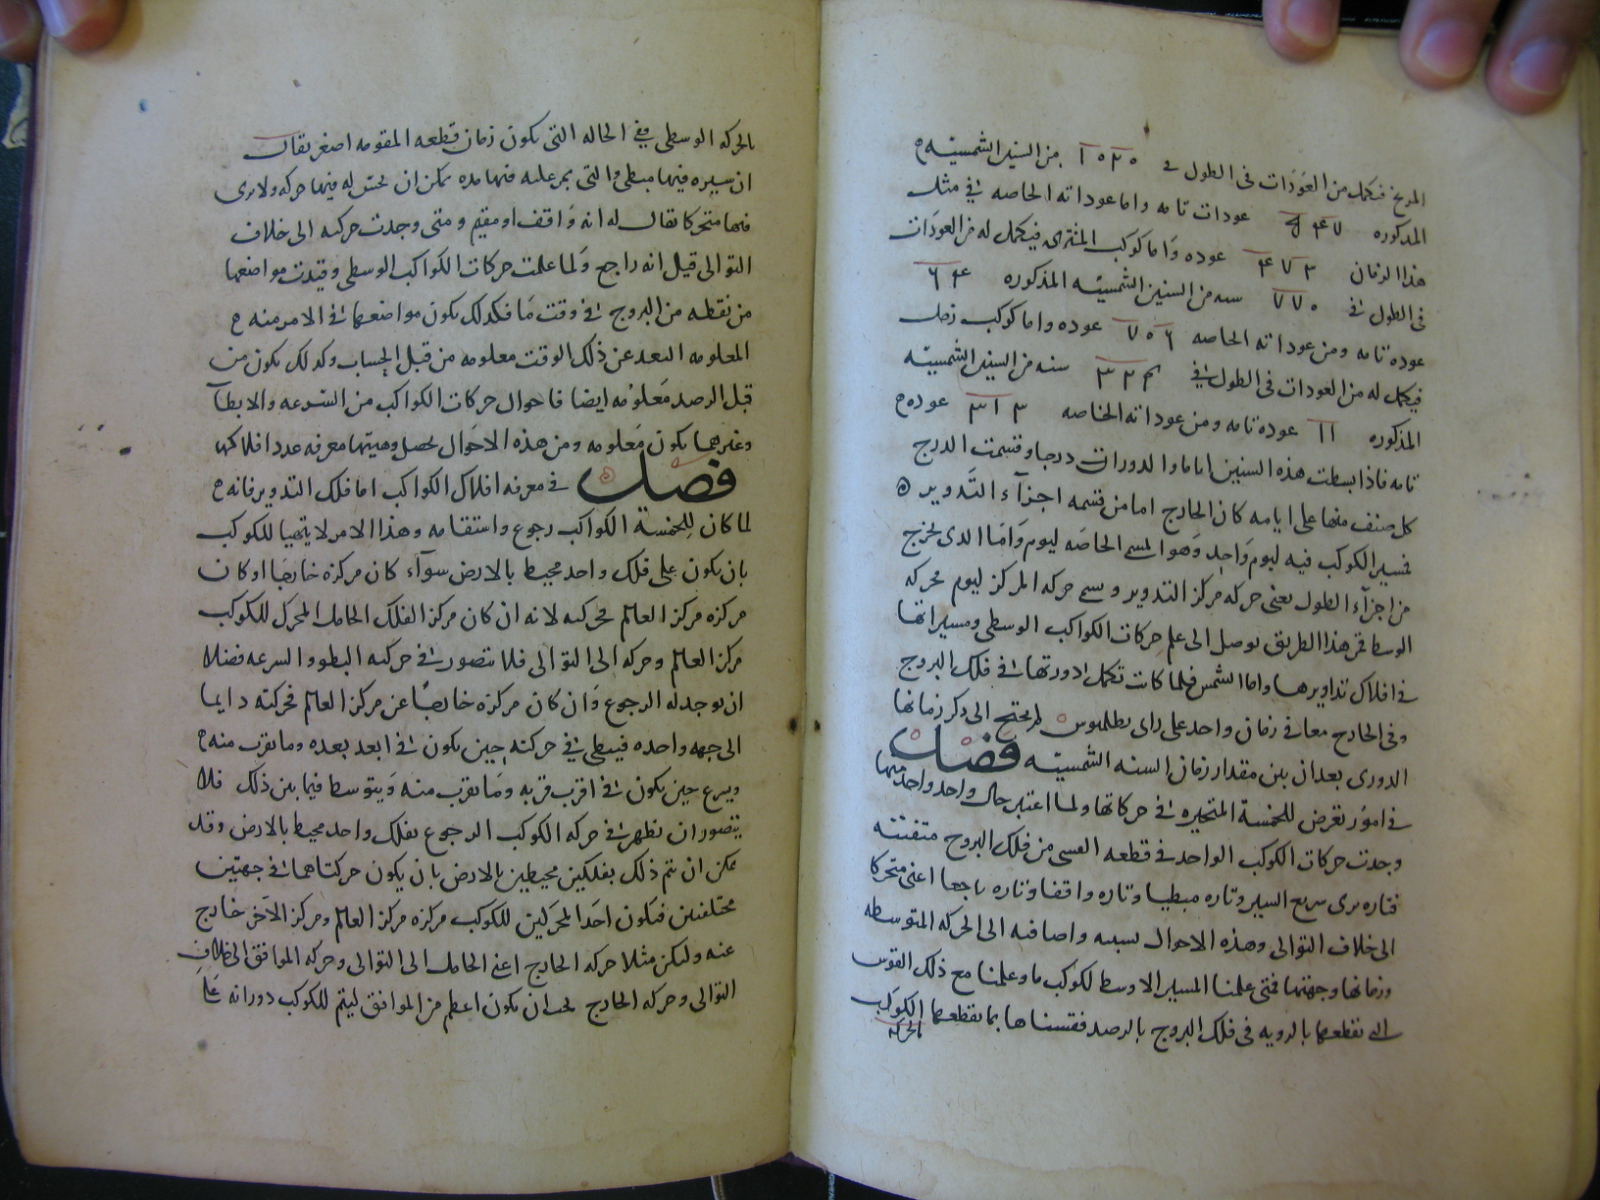 المريخ فيكمل من العودات فى الطول فى ١٠٢٠ من السنين الشمسيه
المذكوره عودات تامه واما عوداته الخاصه فى مثل
هذا الزمان ٤٧٣ عوده واما كوكب المشترى فيكمل له من العودات
فى الطول فى ٧٧٠ سنه من السنين الشمسيه المذكوره ٦٤
عوده تامه ومن عوداته الخاصه ٧٠٦ عوده واما كوكب زحل
فيكمل له من العودات فى الطول فى ٣٢٤ سنه من السنين الشمسيه
المذكوره ١١ عوده تامه ومن عوداته الخاصه ٣١٣ عوده
تامه فاذا بسطت هذه السنين اياما والدورات درجا وقسمت الدرج
كل صنف منها على ايامه كان الخارج اما من قسمه اجزآء التدوير
فمسير الكوكب فيه ليوم واحد وهو المسمى الخاصه ليوم واما الذى يخرج
من اجزآء الطول يعنى حركه مركز التدوير وسمى حركه المركز ليوم محركه
الوسط فمن هذا الطريق توصل الى علم حركات الكواكب الوسطى ومسيراتها
فى افلاك تداويرها واما الشمس فلما كانت تكمل دورتها فى فلك البروج
وفى الخارج معا فى زمان واحد على راى بطلميوس لم يحتج الى ذكر زمانها
الدورى بعد ان بين مقدار زمان السنه الشمسيه فصل
فى امور تعرض للخمسة المتحيره فى حركاتها ولما اعتبر حال واحد واحد منها
وجدت حركات الكوكب الواحد فى قطعه القسى من فلك البروج متفننه
فتاره يرى سريع السير وتاره مبطيا وتاره واقفا وتاره راجعا اعنى متحركا
الى خلاف التوالى وهذه الاحوال نسبه واضافه الى الحركه المتوسطه
وزمانها وجهتها فمتى علمنا المسير الاوسط لكوكب ما وعلمنا مع ذلك القوس
التى يقطعها بالرويه فى فلك البروج بالرصد فقسناها بما يقطعها الكوكب
بالحركه
بالحركه الوسطى ففى الحاله التى يكون زمان قطعه المقومه اصغر يقال
ان سيره فيها مبطى والتى يمر عليه فيها مده يمكن ان يحس له فيها حركه ولا يرى
فيها متحركا يقال له انه واقف او مقيم ومتى وجدت حركته الى خلاف
التوالى قيل انه راجع ولما علمت حركات الكواكب الوسطى وقيدت مواضعها
من نقطه من البروج فى وقت ما فكذلك يكون مواضعها فى الازمنه
المعلومه البعد عن ذلك الوقت معلومه من قبل الحساب وكذلك يكون من
قبل الرصد معلومه ايضا فاحوال حركات الكواكب من السرعه والابطآ
وغيرهما يكون معلومه ومن هذه الاحوال يحصل وهيتها معرفه عدد افلاكها
فصل فى معرفه افلاك الكواكب اما فلك التدوير فانه
لما كان للخمسة الكواكب رجوع واستقامه وهذا الامر لا يتهيا للكوكب
بان يكون على فلك واحد محيط بالارض سوآء كان مركزه خارجا او كان
مركزه مركز العالم محركه لانه ان كان مركز الفلك الحامل المحرك للكوكب
مركز العالم وحركه الى التوالى فلا يتصور فى حركته البطو والسرعه فضلا
ان يوجد له الرجوع وان كان مركزه خارجا عن مركز العالم فحركته دايما
الى جهه واحده فيبطى فى حركته حين يكون فى ابعد بعده وما يقرب منه
ويسرع حين يكون فى اقرب قربه وما يقرب منه ويتوسط فيما بين ذلك فلا
يتصور ان يظهر فى حركه الكوكب الرجوع بفلك واحد محيط بالارض وقد
يمكن ان يتم ذلك بفلكين محيطين بالارض بان يكون حركتاهما فى جهتين
مختلفتين فيكون احد المحركين للكوكب مركزه مركز العالم ومركز الآخر خارج
عنه وليكن مثلا حركه الخارج اعنى الحامل الى التوالى وحركه الموافق الى خلاف
التوالى وحركه الخارج يجب ان يكون اعظم من الموافق ليتم للكوكب دورانه على